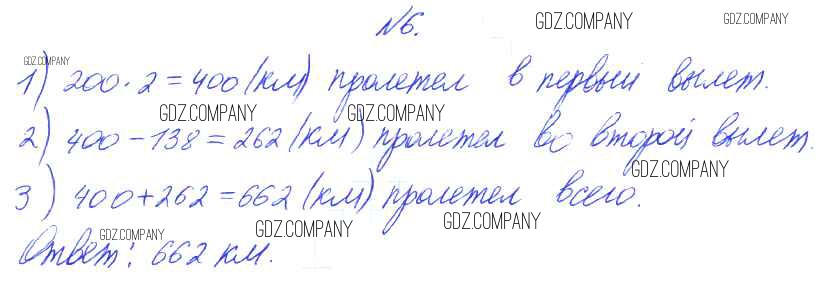 №6. GDZ.COMPANY GDZ.COMPANY
GDZ.COMPANY
1) 200·2=400 (км) пролетел в первый вылет.
GDZ.COMPANY GDZ.COMPANY
2) 400-138=262 (км) пролетел во второй вылет.
GDZ.COMPANY
3) 400+262=662 (км) пролетел всего.
GDZ.COMPANY GDZ.COMPANY GDZ.COMPANY
Ответ: 662 км.